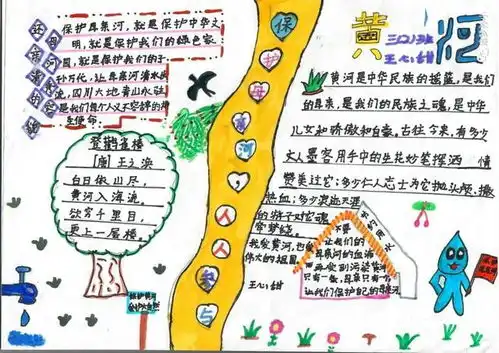 还母亲河清澈明净
保护母亲河,就是保护中华文
明,就是保护我们的绿色家
园,就是保护我们的子
孙万代,让母亲河清水长
流,四川大地青山永驻
是我们每个人义不容辞的神
圣使命
登鹳雀楼
[唐] 王之涣
白日依山尽,
黄河入海流。
欲穷千里目,
更上一层楼。
保护母亲河,人人参与
王心甜
黄河
三(2)班
王心甜
黄河是中华民族的摇篮,是我们
的母亲,是我们的民族之魂,是中华
儿女和骄傲和自豪。古往今来,有多少
文人墨客用手中的生花妙笔挥洒 情
赞美过它;多少仁人志士为它抛头颅、撒
热血;多少浪迹天涯
的游子对它魂
牵梦绕。
我爱黄河,也爱
伟大的祖国。
让我们的
母亲河的血液
不要受到污染黄河
只有一条,母亲只有一个
让我们保护自己的母亲河
节约用水
保护黄河